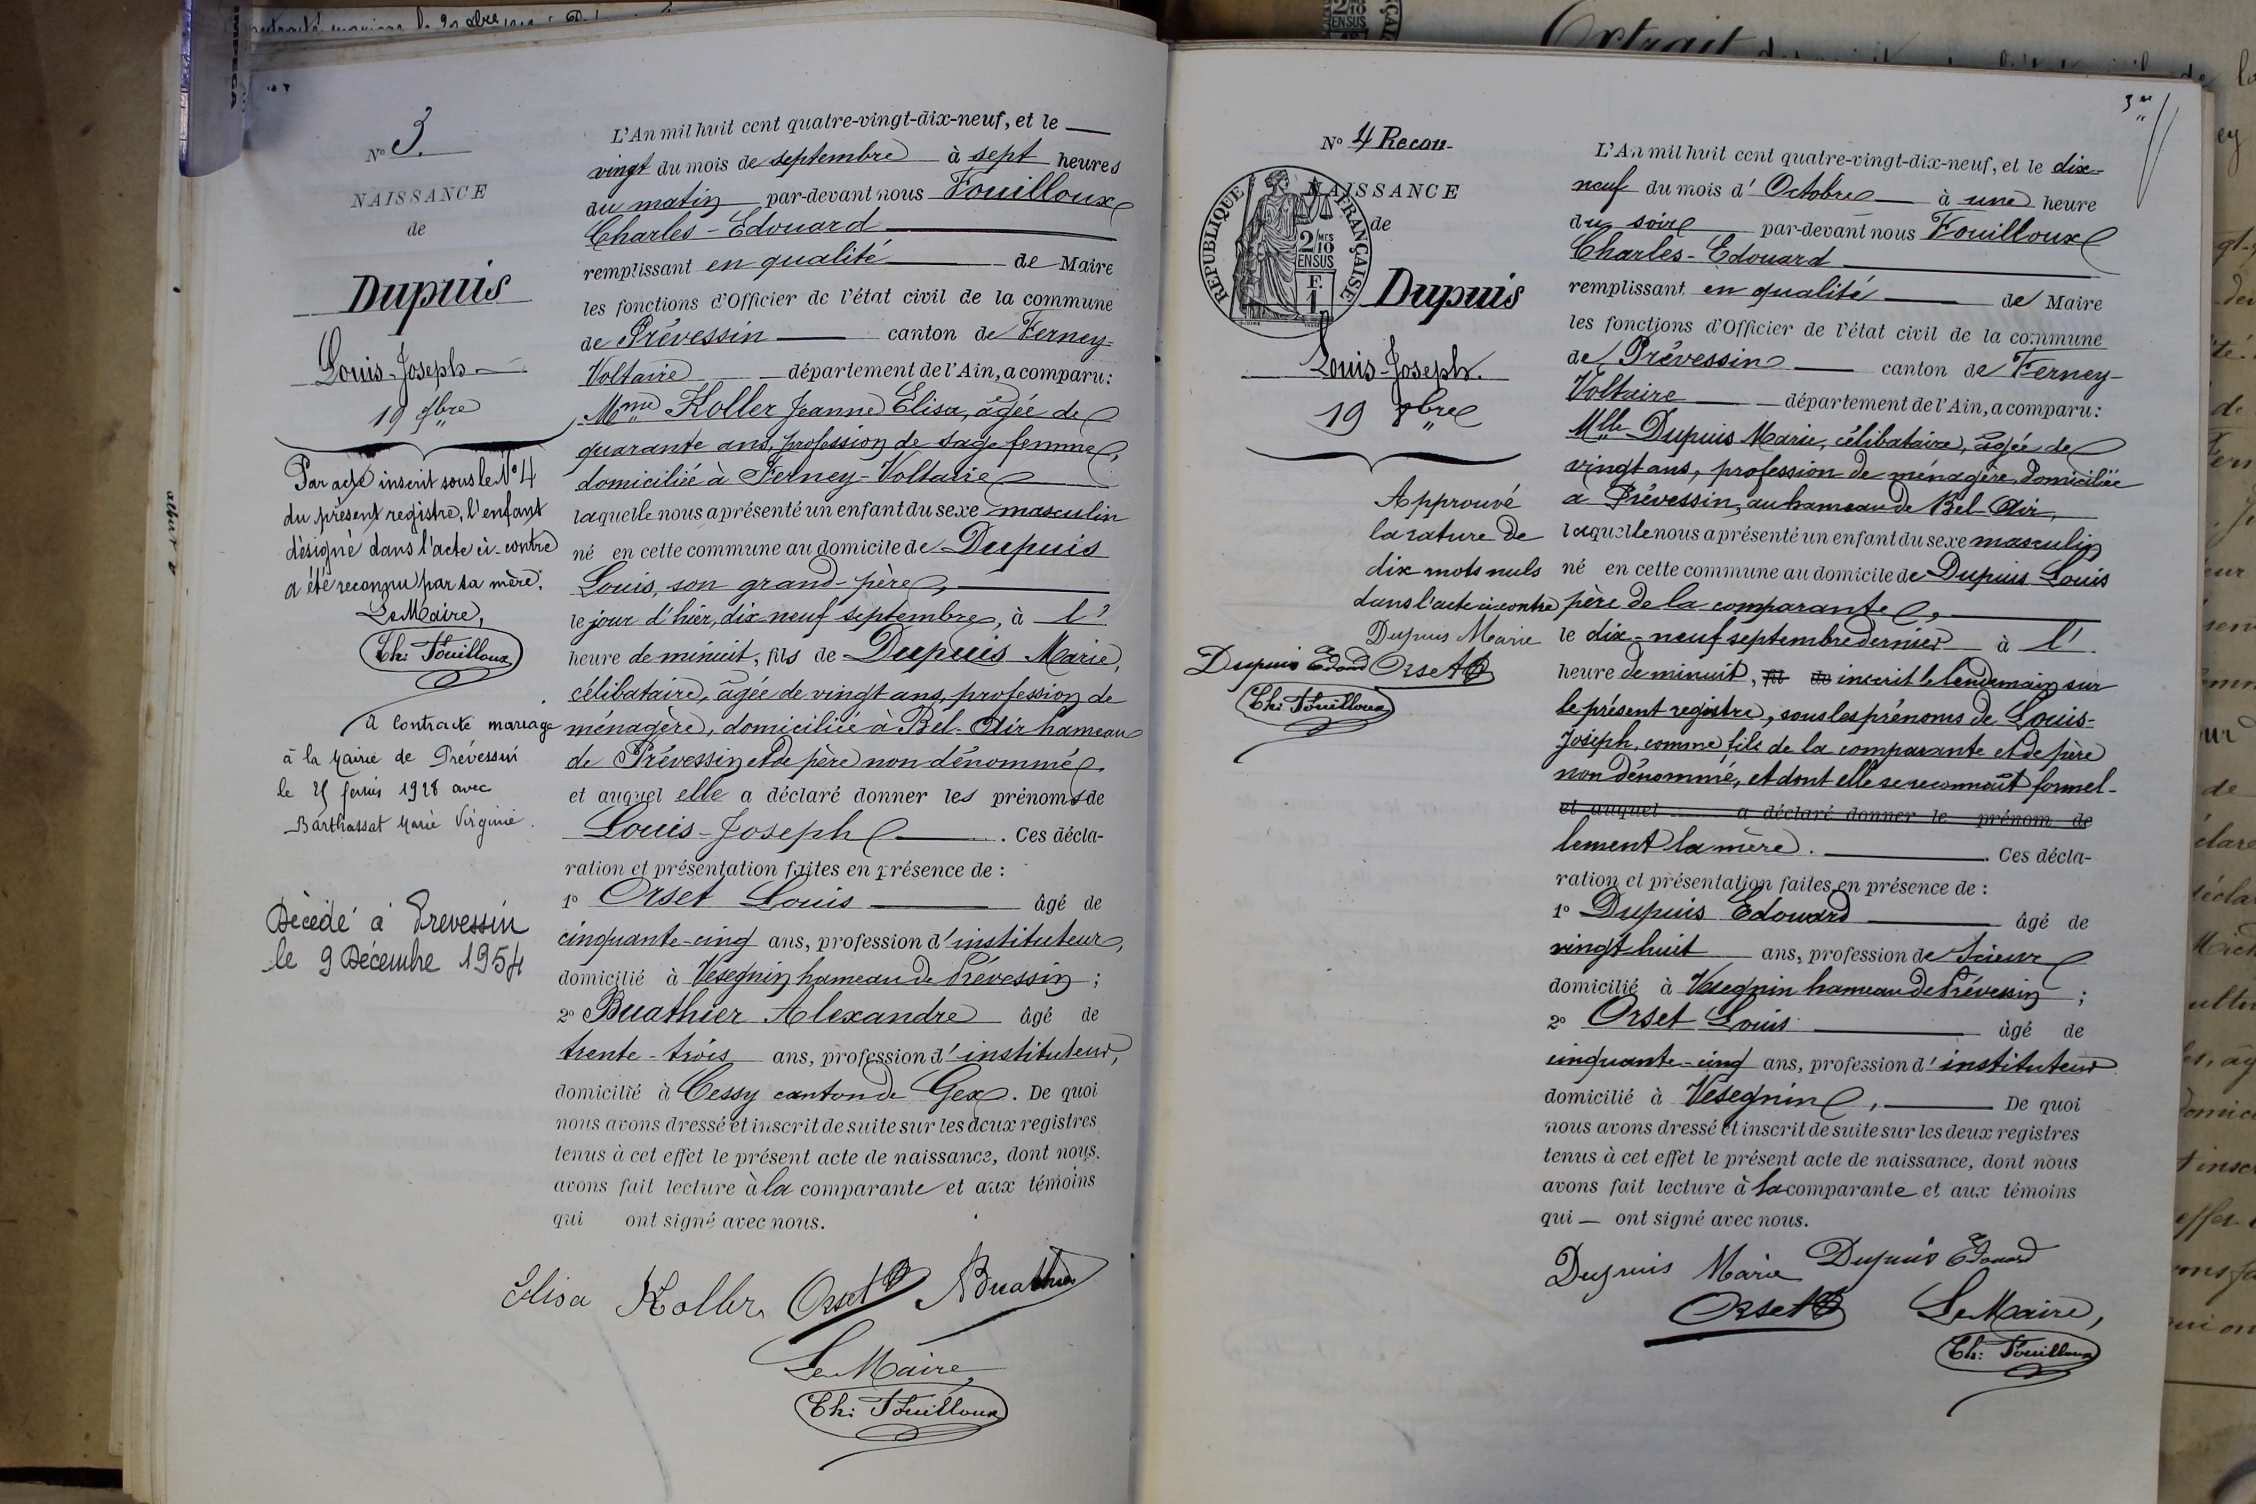 N° 3.
NAISSANCE
de
Dupuis
Louis-Joseph
19 7bre
Par acte inscrit sous le N° 4
du présent registre, l'enfant
désigné dans l'acte ci-contre
a été reconnu par sa mère.
Le Maire,
Ch: Fouilloux
a contracté mariage
à la Mairie de Prévessin
le 25 1928 avec
Barthassat Marie Virginie.
Décédé à Prevessin
le 9 Décembre 1954
L'An mil huit cent quatre-vingt-dix-neuf, et le
vingt du mois de septembre à sept heures
du matin par-devant nous Fouilloux
Charles-Edouard
remplissant en qualité de Maire
les fonctions d'Officier de l'état civil de la commune
de Prévessin canton de Ferney-
Voltaire département de l'Ain, a comparu:
Mme Koller Jeanne Elisa, âgée de
quarante ans, profession de sage femme,
domiciliée à Ferney-Voltaire
laquelle nous a présenté un enfant du sexe masculin
né en cette commune au domicile de Dupuis
Louis, son grand-père,
le jour d'hier, dix neuf septembre, à l'
heure de minuit, fils de Dupuis Marie,
célibataire, âgée de vingt ans, profession de
ménagère, domiciliée à Bel-Air hameau
de Prévessin et de père non dénommé
et auquel elle a déclaré donner les prénoms de
Louis-Joseph. Ces décla-
ration et présentation faites en présence de :
1° Orset Louis âgé de
cinquante-cinq ans, profession d'instituteur,
domicilié à Vesegnin hameau de Prévessin ;
2° Buathier Alexandre âgé de
trente-trois ans, profession d'instituteur,
domicilié à Cessy canton de Gex. De quoi
nous avons dressé et inscrit de suite sur les deux registres
tenus à cet effet le présent acte de naissance, dont nous
avons fait lecture à la comparante et aux témoins
qui ont signé avec nous.
Elisa Koller Orset ABuathier
Le Maire,
Ch: Fouilloux
N° 4 Recon.
NAISSANCE
de
REPUBLIQUE FRANÇAISE
2/10 MES
EN SUS
F.
1
Dupuis
Louis-Joseph.
19 7bre
Approuvé
la rature de
dix mots nuls
dans l'acte ci-contre
Dupuis Marie
Dupuis Edouard Orset
Ch: Fouilloux
L'An mil huit cent quatre-vingt-dix-neuf, et le dix-
neuf du mois d'Octobre à une heure
du soir par-devant nous Fouilloux
Charles-Edouard
remplissant en qualité de Maire
les fonctions d'Officier de l'état civil de la commune
de Prévessin canton de Ferney-
Voltaire département de l'Ain, a comparu:
Mlle Dupuis Marie, célibataire, âgée de
vingt ans, profession de ménagère, domiciliée
à Prévessin, au hameau de Bel-Air,
laquelle nous a présenté un enfant du sexe masculin
né en cette commune au domicile de Dupuis Louis
père de la comparante,
le dix-neuf septembre dernier à l'
heure de minuit, fil de inscrit le lendemain sur
le présent registre, sous les prénoms de Louis-
Joseph, comme fils de la comparante et de père
non dénommé, et dont elle se reconnaît formel-
et auquel a déclaré donner le prénom de
lement la mère. Ces décla-
ration et présentation faites en présence de :
1° Dupuis Edouard âgé de
vingt huit ans, profession de Scieur
domicilié à Vesegnin hameau de Prévessin ;
2° Orset Louis âgé de
cinquante-cinq ans, profession d'instituteur
domicilié à Vesegnin, De quoi
nous avons dressé et inscrit de suite sur les deux registres
tenus à cet effet le présent acte de naissance, dont nous
avons fait lecture à la comparante et aux témoins
qui ont signé avec nous.
Dupuis Marie Dupuis Edouard
Orset Le Maire,
Ch: Fouilloux
Extrait